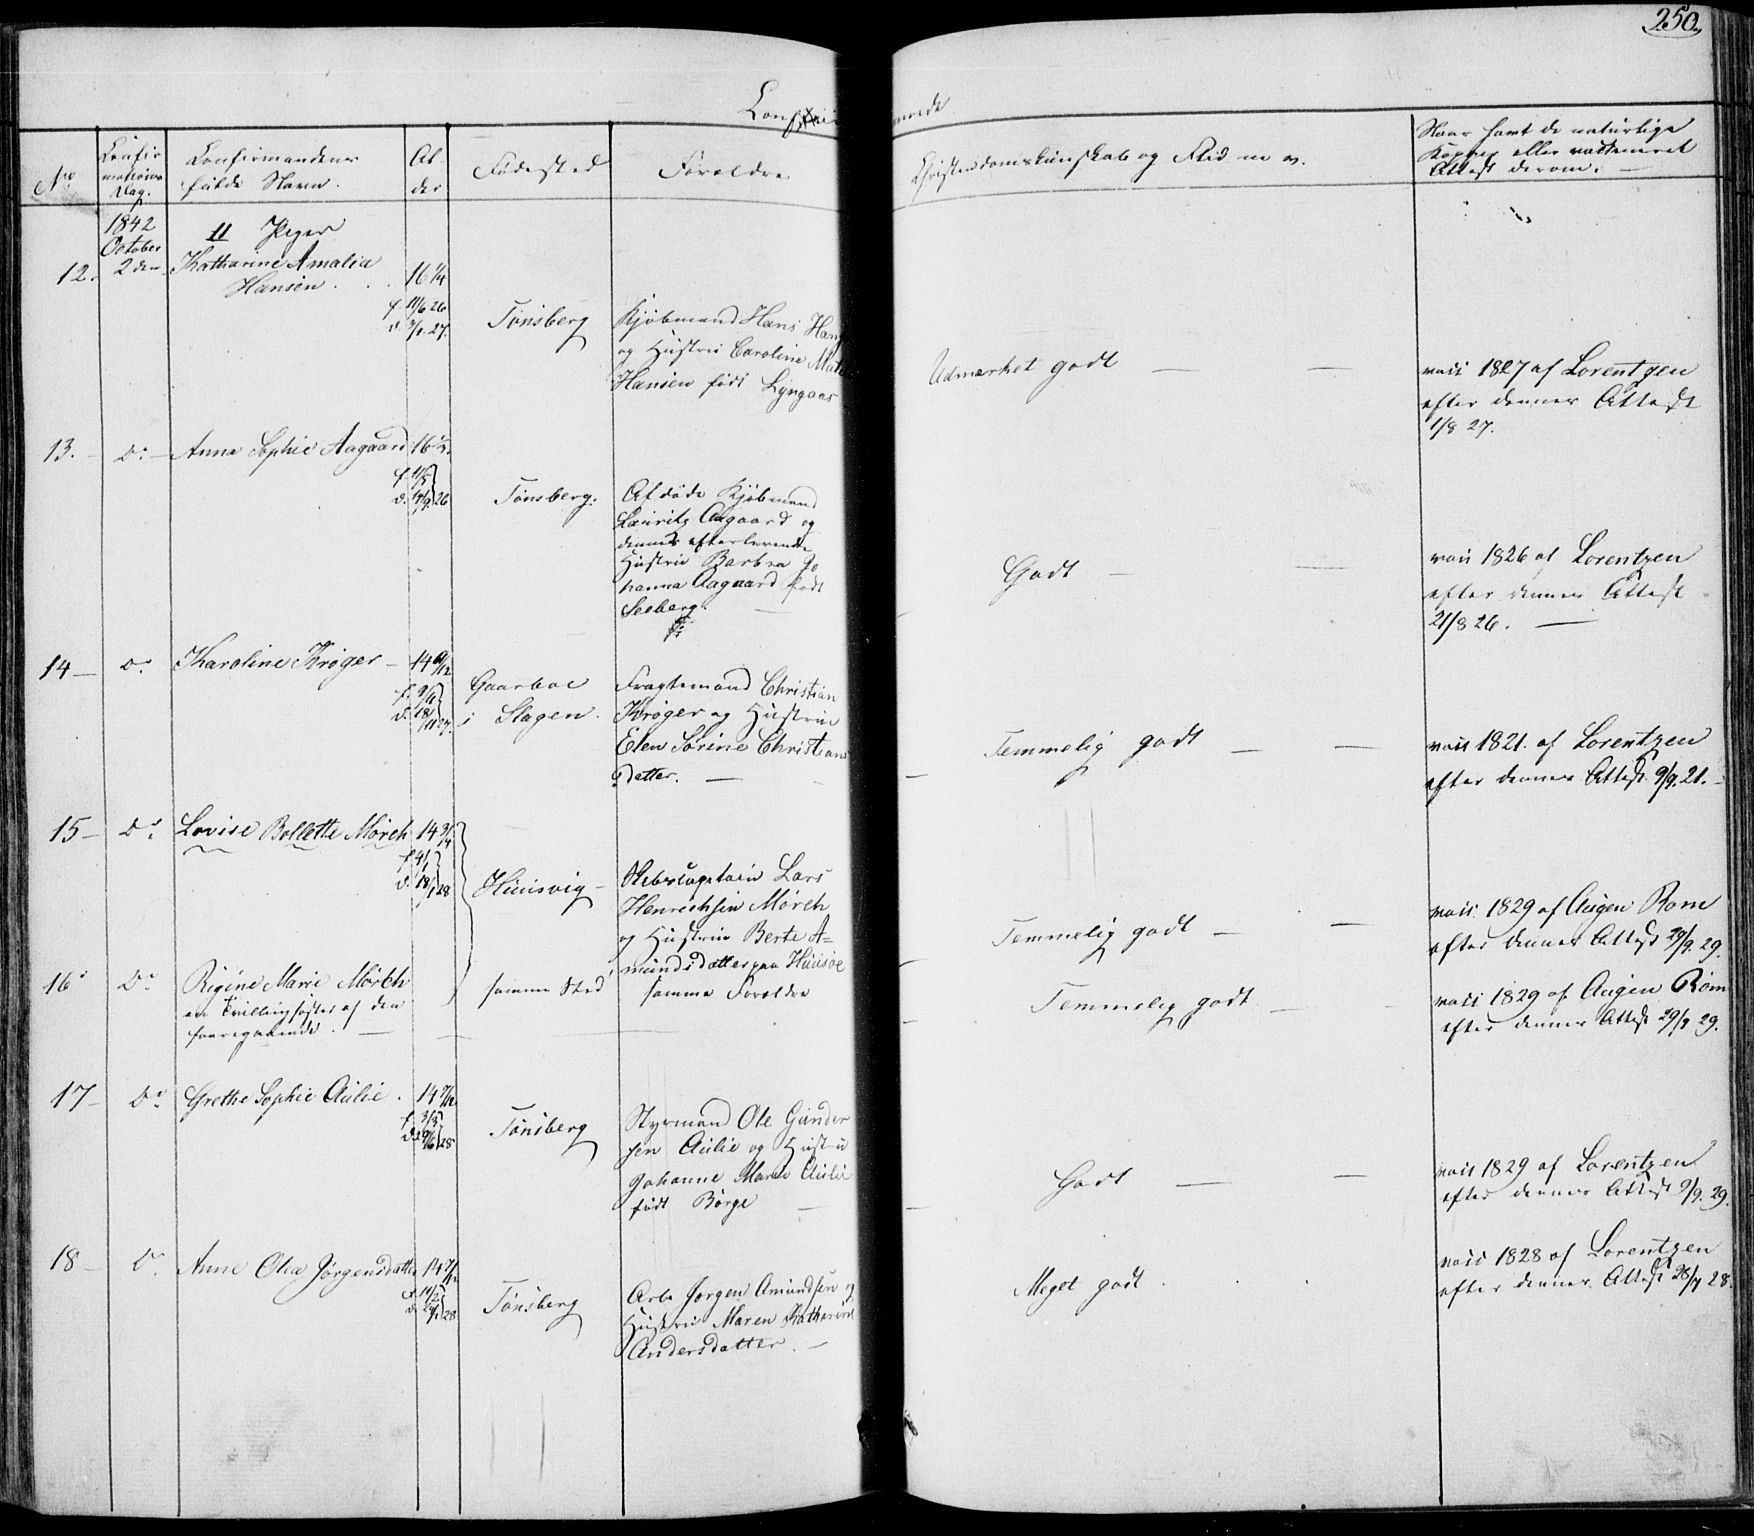 250.
Confirmerede
No
Confirmations Dag.
Confirmandens
fulde Navn.
Alder
Fødested
Forældre
Christendomskundskab og Flid m. v.
Naar havt de naturlige
Kopper eller vaccineret
Attest derom.
1842
October
11 Piger
12. 2den Katharine Amalia
Hansen . . 16 1/4
f. 11/6 26
d. 27.
Tønsberg
Kjøbmand Hans Hans
og Hustru Caroline
Hansen født Lyngaas
Udmærket godt — —
vacc 1827 af Lorentzen
efter dennes Attest
1/8 27.
13. Do Anna Sophie Aagaard 16
26
Tønsberg.
Afdøde Kjøbmand
Lauritz Aagaard og
dennes efterlevende
Hustru Barbra Jo
hanna Aagaard født
Seeberg.
Godt — —
vacc 1826 af Lorentzen
efter dennes Attest
21/8 26. —
14 — Do Karoline Krøger — 14
d. 18/11 27.
Gaarboe
i Slagen.
Fragtemand Christian
Krøger og Hustrue
Elen Sørine Christians
Datter. —
Temmelig godt — —
vacc 1821. af Lorentzen
efter dennes Attest 9/9. 21.
15 — Do Lovise Bollette Mørch 14 3/4
d. 18/1 28
Huusvig —
Skibscapetain Lars
Henrichsen Mørch
og Hustrue Berte A=
mundsdatter paa Huusøe
Temmelig godt — —
vacc 1829 af Augen Rom
efter dennes Attest 29/9. 29.
16 Do Rigine Marie Mørch
en Tvillingsøster af den
foregaaende. —
samme Sted
samme Forældre
Temmelig godt —
vacc 1829 af Augen Rom
efter dennes Attest 29/9 29.
17 — Do Grethe Sophie Aulie . 14
28
Tønsberg
Styrmand Ole Gunder
sen Aulie og Hustru
Johanne Maren Aulie
født Børge —
Godt — —
vacc 1829 af Lorentzen
efter dennes Attest 9/9. 29.
18 — Do Anne Olea Jørgensdatter 14
28
Tønsberg
Arb. Jørgen Amundsen og
Hustru Maren Katharine
Andersdatter. —
Meget godt .
vacc 1828 af Lorentzen
efter dennes Attest 28.